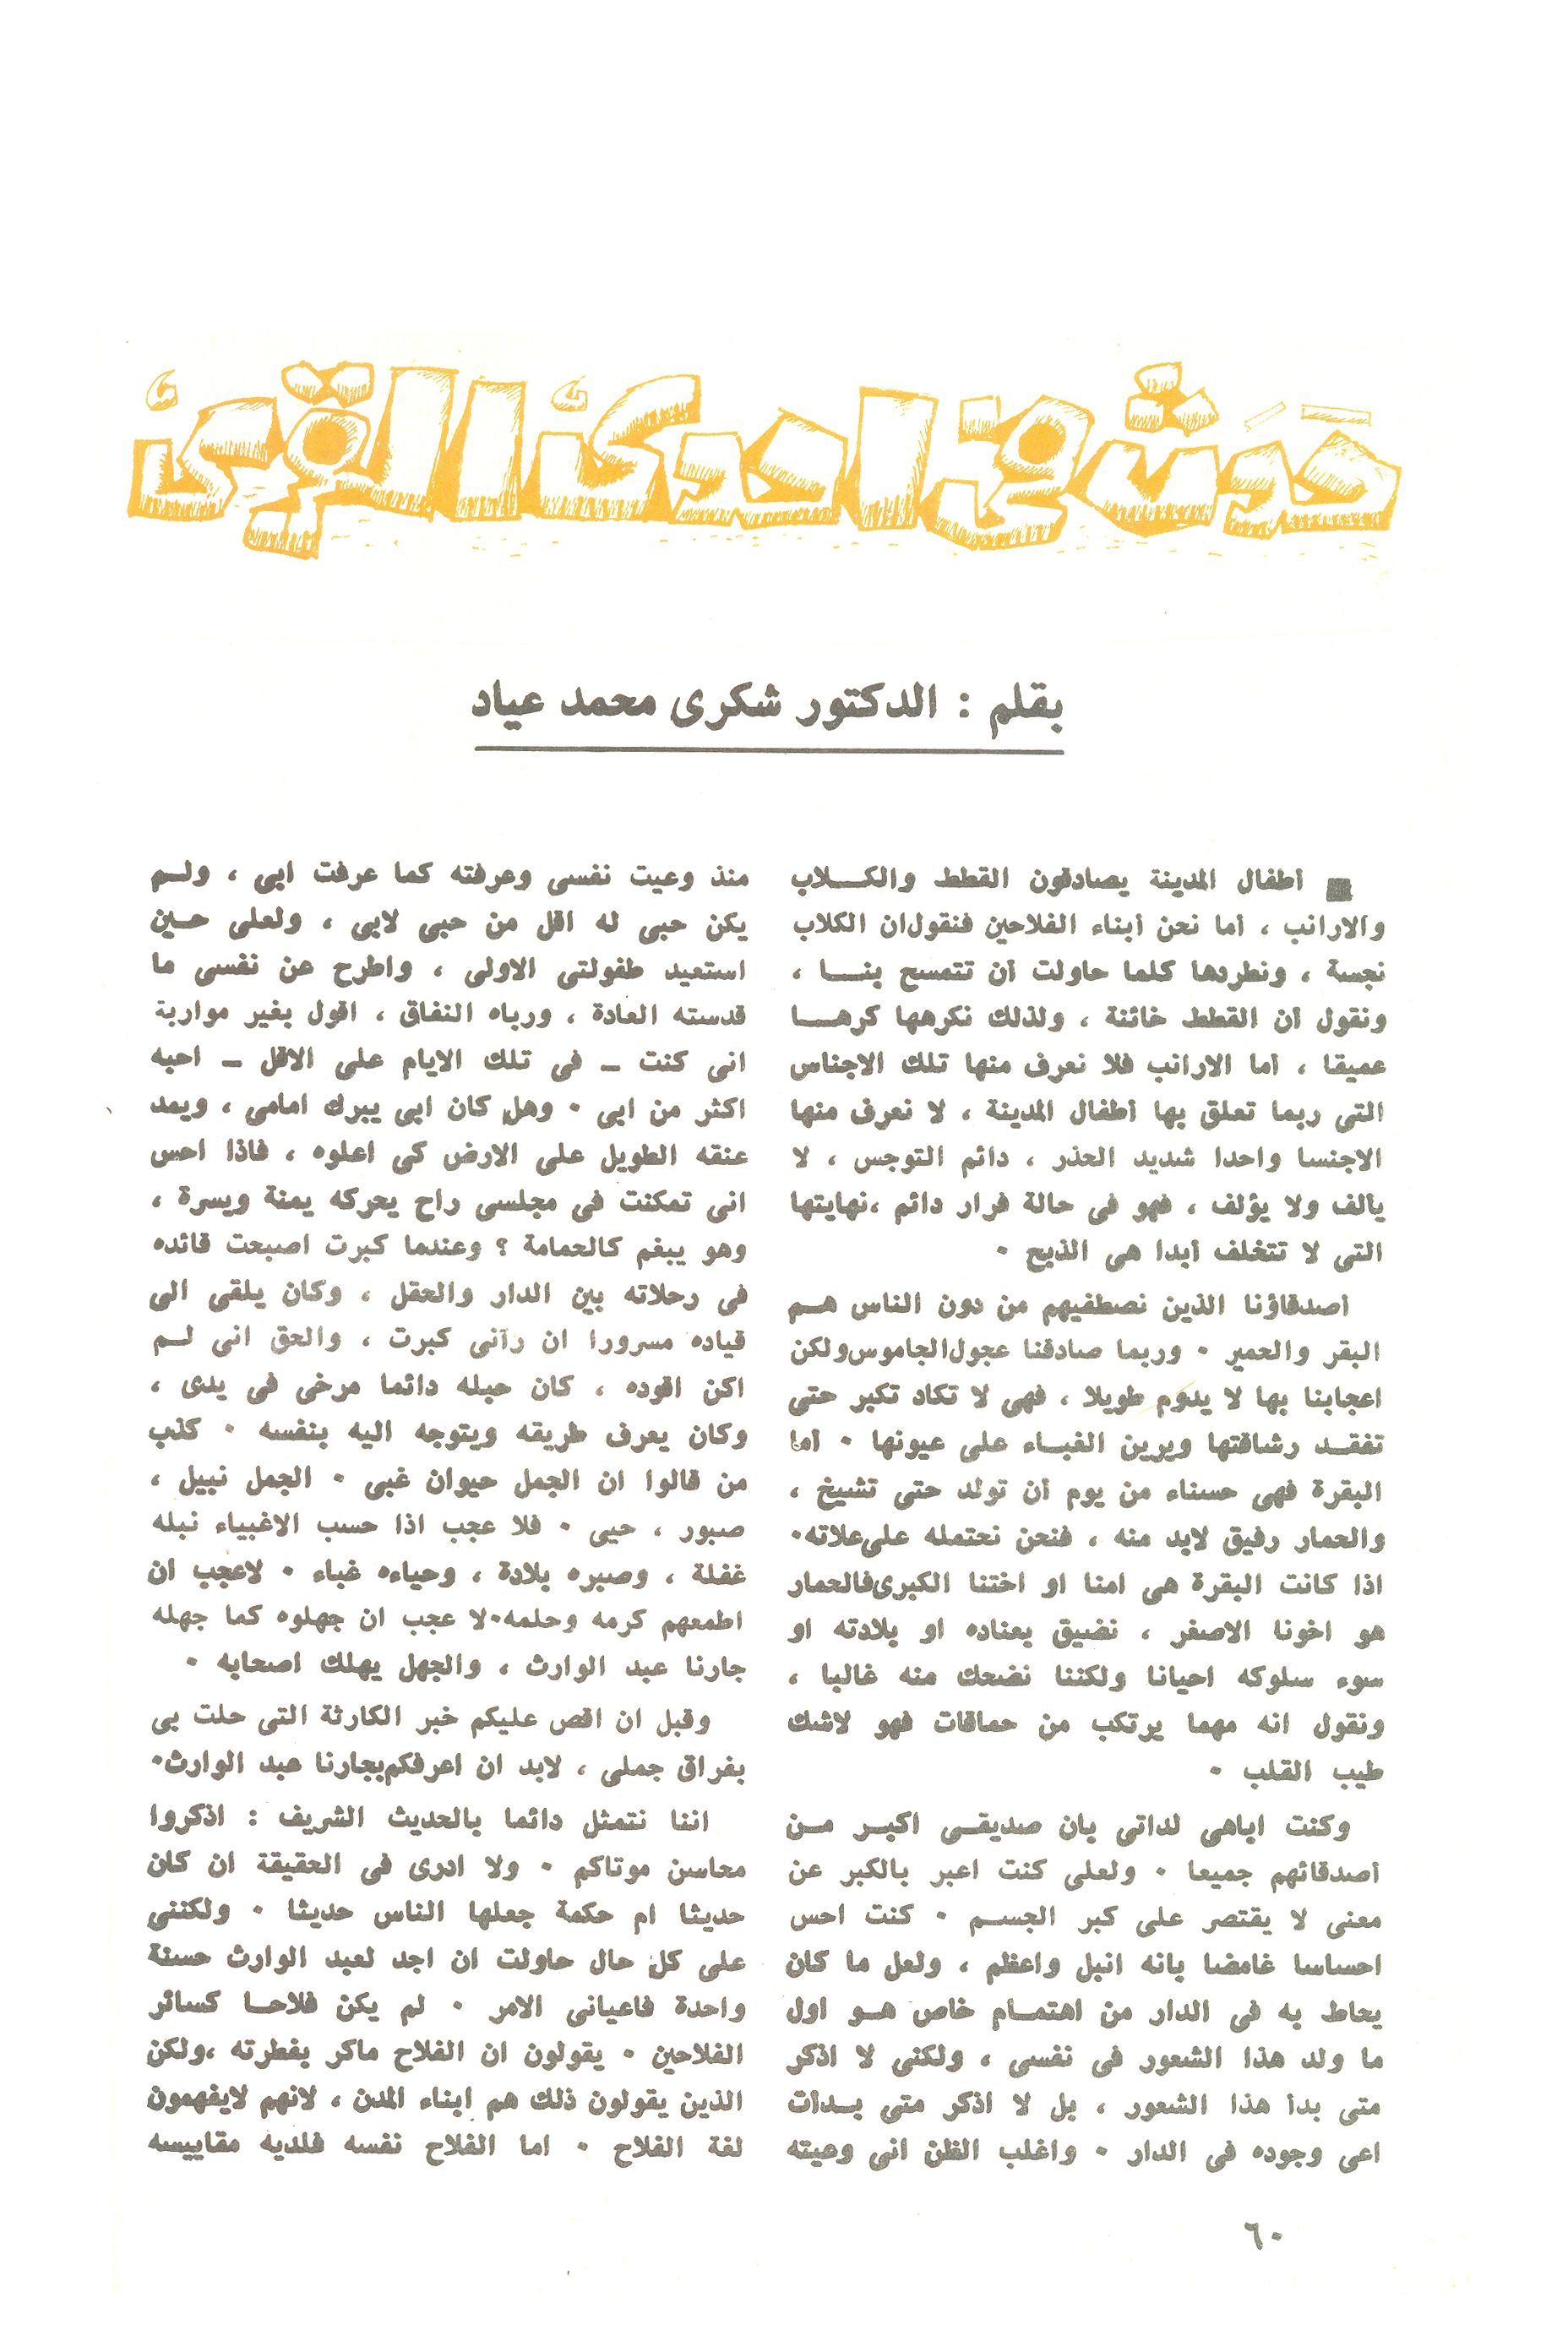 حدث في احدى القرى
بقلم : الدكتور شكرى محمد عياد
■ أطفال المدينة يصادقون القطط والكلاب
والارانب ، أما نحن أبناء الفلاحين فنقول ان الكلاب
نجسة ، ونطردها كلما حاولت أن تتمسح بنا ،
ونقول أن القطط خائنة ، ولذلك نكرهها كرها
عميقا ، أما الارانب فلا نعرف منها تلك الاجناس
التي ربما تعلق بها أطفال المدينة ، لا نعرف منها
الاجنسا واحدا شديد الحذر ، دائم التوجس ، لا
يألف ولا يؤلف ، فهو في حالة فرار دائم ، نهايتها
التي لا تتخلف أبدا هي الذبح ٠
أصدقاؤنا الذين نصطفيهم من دون الناس هم
البقر والحمير ٠ وربما صادقنا عجول الجاموس ولكن
اعجابنا بها لا يدوم طويلا ، فهي لا تكاد تكبر حتى
تفقد رشاقتها ويرين الغباء على عيونها ٠ أما
البقرة فهي حسناء من يوم أن تولد حتى تشيخ ،
والحمار رفيق لابد منه ، فنحن نحتمله على علاته ٠
اذا كانت البقرة هي امنا او اختنا الكبرى فالحمار
هو اخونا الاصغر ، نضيق بعناده او بلادته او
سوء سلوكه احيانا ولكننا نضحك منه غالبا ،
ونقول انه مهما يرتكب من حماقات فهو لاشك
طيب القلب ٠
وكنت اباهي لداتي بان صديقي اكبر من
أصدقائهم جميعا ٠ ولعلي كنت اعبر بالكبر عن
معنى لا يقتصر على كبر الجسم ٠ كنت احس
احساسا غامضا بانه انبل واعظم ، ولعل ما كان
يحاط به في الدار من اهتمام خاص هو اول
ما ولد هذا الشعور في نفسي ، ولكني لا اذكر
متى بدأ هذا الشعور ، بل لا اذكر متى بدأت
اعي وجوده في الدار ٠ واغلب الظن اني وعيته
منذ وعيت نفسي وعرفته كما عرفت ابي ، ولم
يكن حبي له اقل من حبي لابي ، ولعلي حين
استعيد طفولتي الاولى ، واطرح عن نفسي ما
قدسته العادة ، ورباه النفاق ، اقول بغير مواربة
اني كنت – في تلك الايام على الاقل – احبه
اكثر من ابي ٠ وهل كان ابي يبرك امامي ، ويمد
عنقه الطويل على الارض كي اعلوه ، فاذا احس
اني تمكنت في مجلسي راح يحركه يمنة ويسرة ،
وهو يبغم كالحمامة ؟ وعندما كبرت اصبحت قائده
في رحلاته بين الدار والحقل ، وكان يلقي الى
قياده مسرورا ان رآني كبرت ، والحق اني لم
اكن اقوده ، كان حبله دائما مرخى في يدى ،
وكان يعرف طريقه ويتوجه اليه بنفسه ٠ كذب
من قالوا ان الجمل حيوان غبي ٠ الجمل نبيل ،
صبور ، حيي ٠ فلا عجب اذا حسب الاغبياء نبله
غفلة ، وصبره بلادة ، وحياءه غباء ٠ لاعجب ان
اطمعهم كرمه وحلمه ٠ لا عجب ان جهلوه كما جهله
جارنا عبد الوارث ، والجهل يهلك اصحابه ٠
وقبل ان اقص عليكم خبر الكارثة التي حلت بي
بفراق جملي ، لابد ان اعرفكم بجارنا عبد الوارث ٠
اننا نتمثل دائما بالحديث الشريف : اذكروا
محاسن موتاكم ٠ ولا ادرى في الحقيقة ان كان
حديثا ام حكمة جعلها الناس حديثا ٠ ولكنني
على كل حال حاولت ان اجد لعبد الوارث حسنة
واحدة فاعياني الامر ٠ لم يكن فلاحا كسائر
الفلاحين ٠ يقولون ان الفلاح ماكر بفطرته ، ولكن
الذين يقولون ذلك هم ابناء المدن ، لانهم لايفهمون
لغة الفلاح ٠ اما الفلاح نفسه فلديه مقاييسه
٦٠